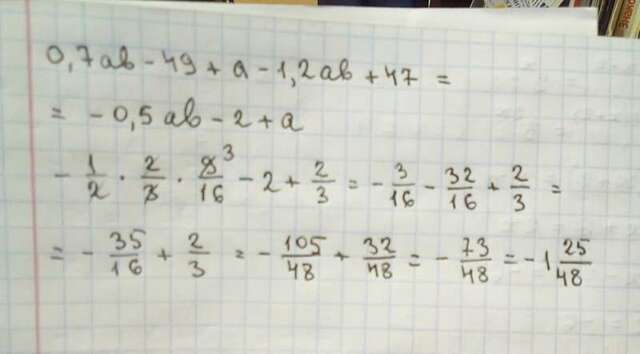 0,7ab - 49 + a - 1,2ab + 47 =
= - 0,5ab - 2 + a
- 1/2 · 2/3 · 9³/16 - 2 + 2/3 = - 3/16 - 32/16 + 2/3 =
= - 35/16 + 2/3 = - 105/48 + 32/48 = - 73/48 = - 1 25/48